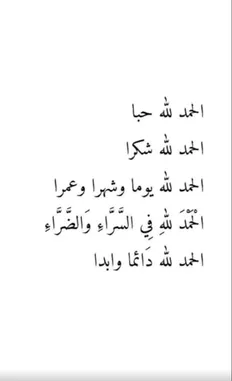 الحمد لله حبا
الحمد لله شكرا
الحمد لله يوما وشهرا وعمرا
الْحَمْدَ للهِ فِي السَّرَّاءِ وَالضَّرَّاءِ
الحمد لله دَائما وابدا